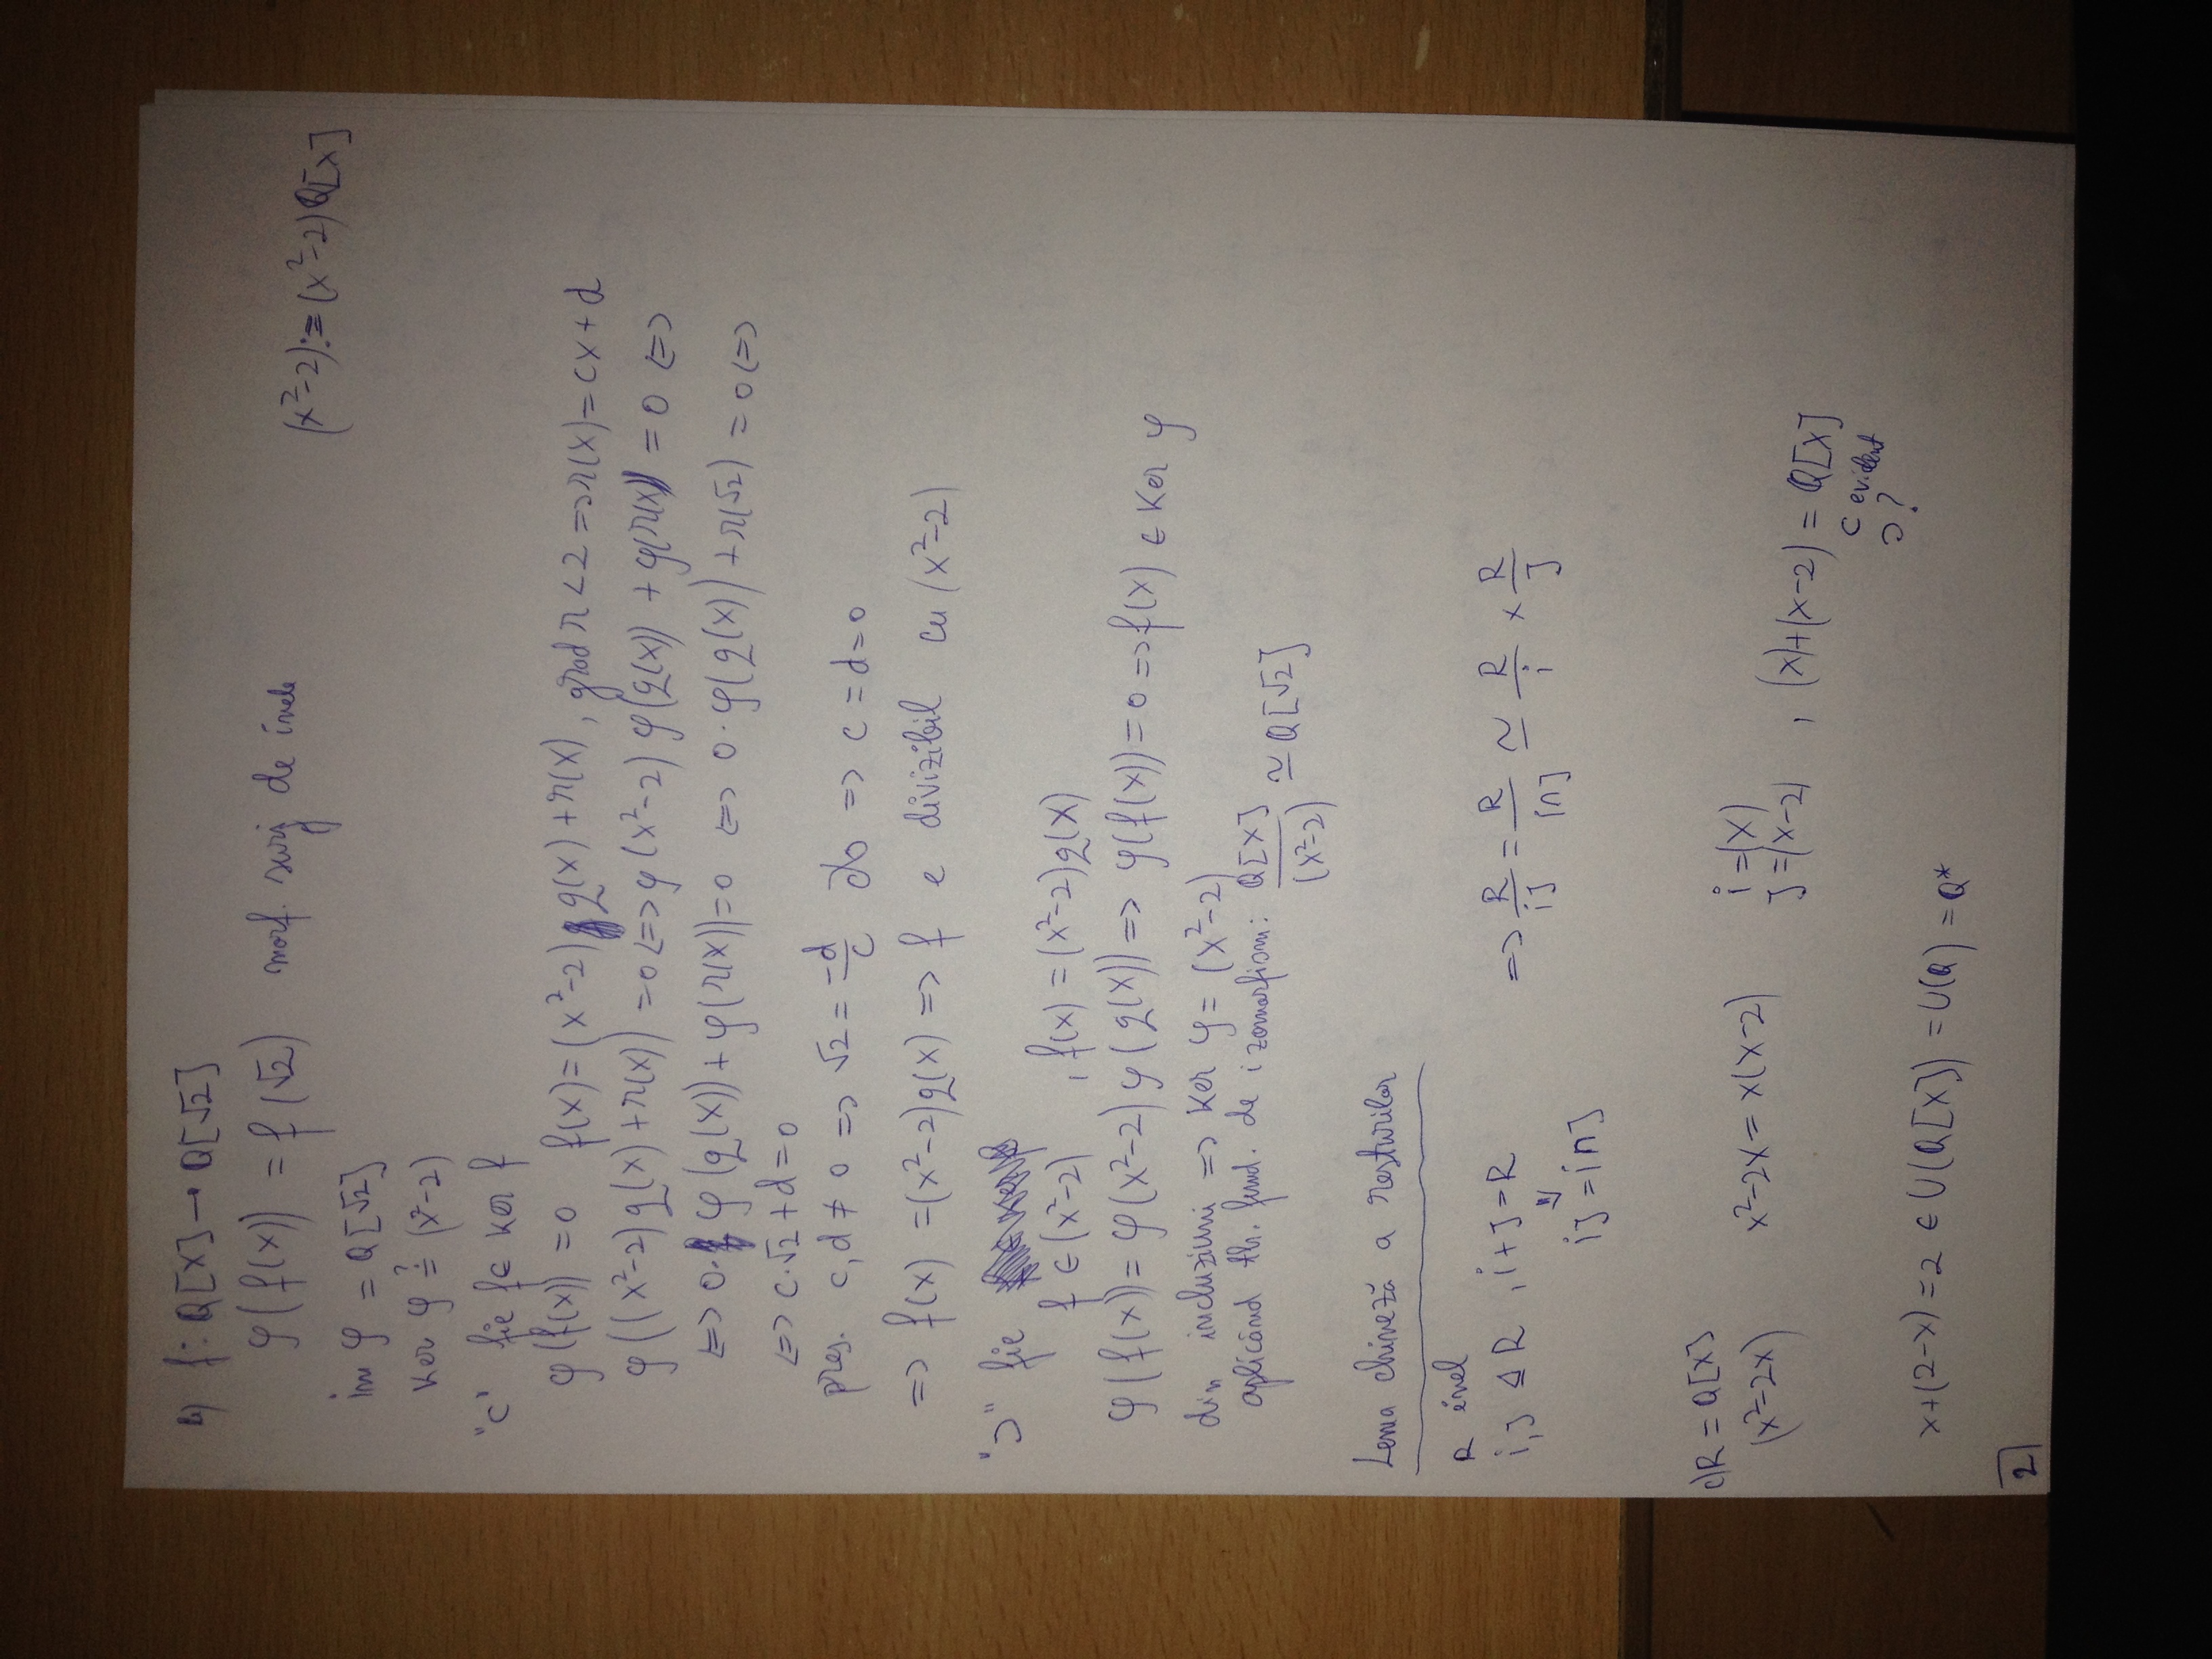 b) f: Q[X] → Q[√2]
φ(f(x)) = f(√2) morf. surj de inele
(x²-2) := (x²-2)Q[X]
im φ = Q[√2]
Ker φ ≟ (x²-2)
"⊂" fie f ∈ Ker f
φ(f(x)) = 0 f(x) = (x²-2) g(x) + r(x), grad r < 2 => r(x) = cx + d
φ((x²-2)g(x) + r(x)) = 0 <=> φ(x²-2) φ(g(x)) + φ(r(x)) = 0 <=>
<=> 0· φ(g(x)) + φ(r(x)) = 0 <=> 0·φ(g(x)) + r(√2) = 0 <=>
<=> c·√2 + d = 0
pres. c, d ≠ 0 => √2 = -d/c => c = d = 0
=> f(x) = (x²-2)g(x) => f e divizibil cu (x²-2)
"⊃" fie
f ∈ (x²-2) , f(x) = (x²-2)g(x)
φ(f(x)) = φ(x²-2) φ(g(x)) => φ(f(x)) = 0 => f(x) ∈ Ker φ
din incluziuni => Ker φ = (x²-2)
aplicând th. fund. de izomorfism: Q[X]/(x²-2) ≃ Q[√2]
Lema chineză a resturilor
R inel
i, J ⊴ R , i + J = R => R/iJ = R/i∩J ≃ R/i × R/J
⇓
iJ = i∩J
c) R = Q[X]
(x²-2x) x²-2x = x(x-2) i = (x)
J = (x-2) , (x)+(x-2) = Q[X]
⊂ evident
⊃ ?
x+(2-x) = 2 ∈ U(Q[X]) = U(Q) = Q*
2